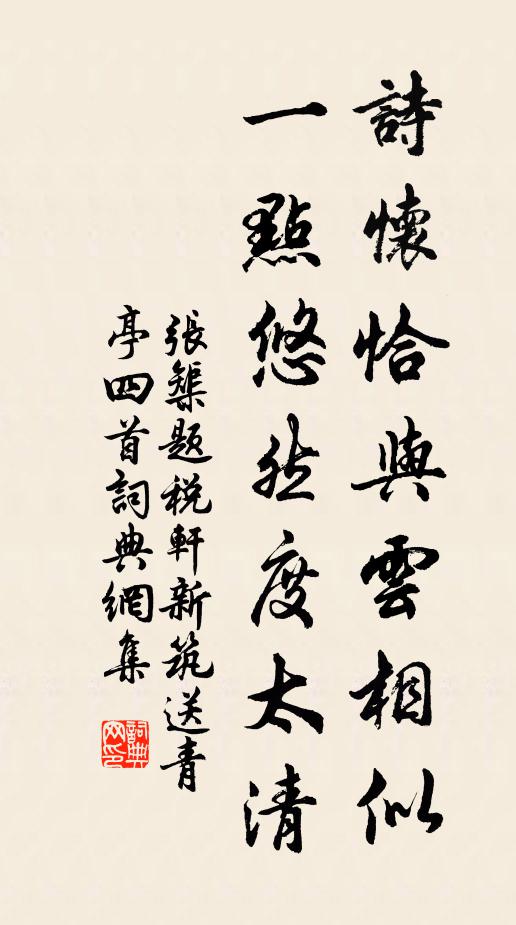 詩懷恰與雲相似
一點悠然度太清
張榘題税軒新筑送青
亭四首詞典網集
詞典
网印